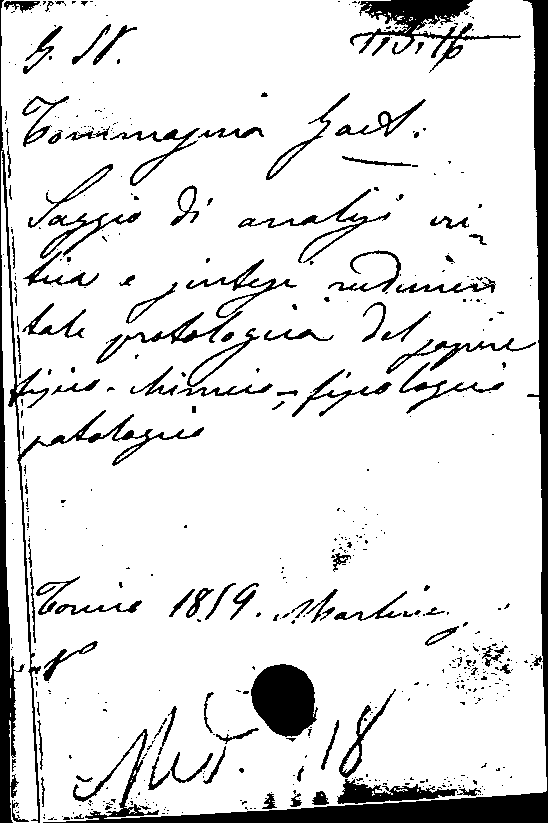 Tommasina Gaet.
Saggio di analisi cri-
tica e sintesi rudimen
tale protologica del sapere
fisico-chimico-fisiologico-
patologico
Torino 1859. Martinez
in 8°
Med. 18